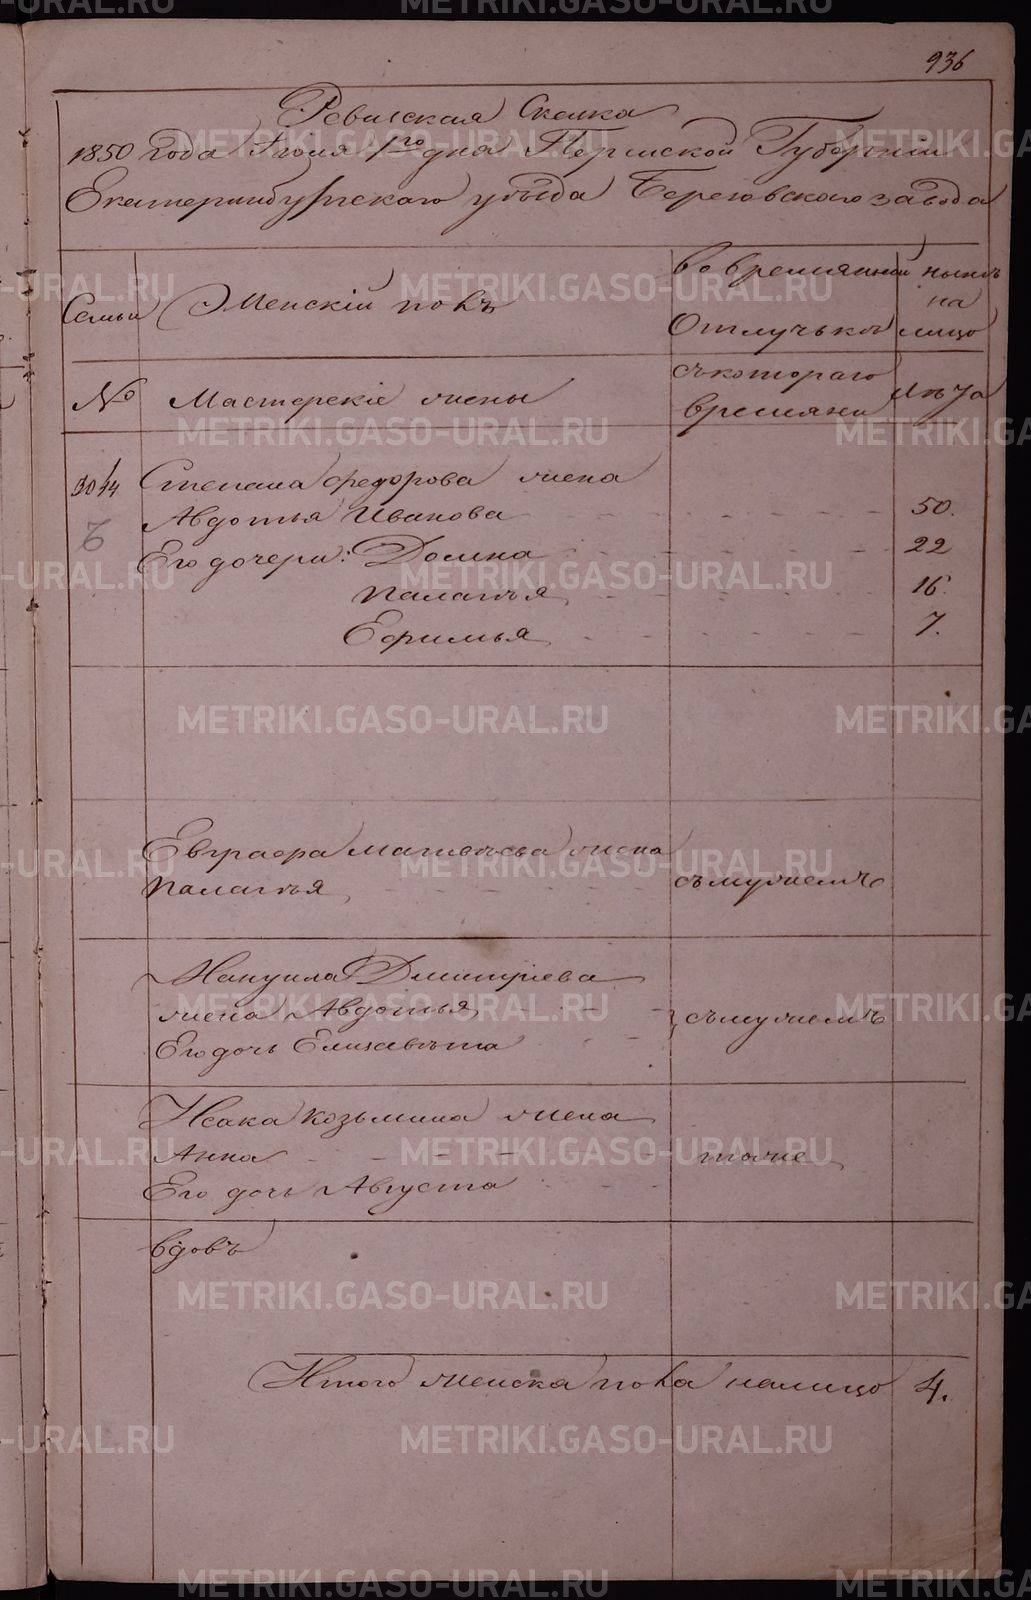 936
Ревизская Скаска
1850 года Июля 1го дня Пермской Губернии
Екатеринбургскаго уъзда Березовскаго завода
Семьи
Женскiй полъ
во времянной
Отлучькѣ
нынѣ
на
лицо
№
Мастерскiе жены
съ котораго
времяни
Лѣта
Степана Федорова жена
Авдотья Иванова 50.
Его дочери: Домна 22
Палагѣя 16.
Ефимья 7.
Евграфа Матвѣева жена
Палагѣя съ мужемъ
Мануила Дмитрiева
жена Авдотья съ мужемъ
Его дочь Елисавѣта
Исака Козьмина жена
Анна тоже
Его дочь Августа
вдовъ
Итого женска пола налицо 4.
METRIKI.GASO-URAL.RU